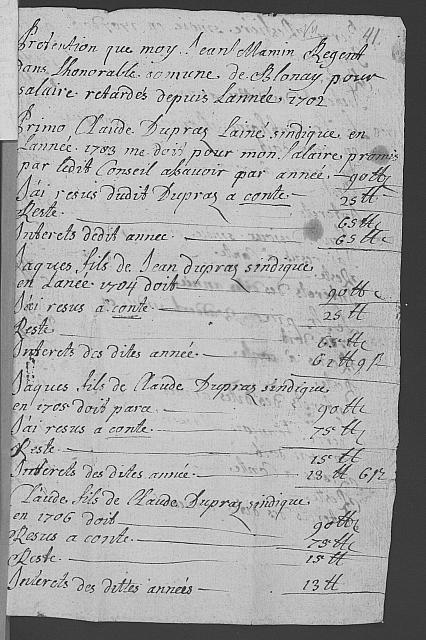 41.
Pretention que moy Jean Mamin Regent
dans Lhonorable comune de Blonay pour
salaire retardés depuis Lannée 1702
Primo Claude Dupraz Lainé sindique en
Lannée 1703 me doit pour mon Salaire promis
par ledit Conseil assavoir par année – 90 tt
J'ai resus dudit Dupraz a conte – 25 tt
Reste – 65 tt
Interets dédit annee – 65 tt
Jaques fils de Jean dupraz sindique
en Lanée 1704 doit – 90 tt
J'ai resus a conte – 25 tt
Reste – 65 tt
Interets des dites année – 61 tt 9 ß
Jaques fils de Claude Dupraz sindique
en 1705 doit – 90 tt
J'ai resus a conte – 75 tt
Reste – 15 tt
Interets des dites année – 13 tt 6 ß
Claude fils de Claude Dupraz sindique
en 1706 doit – 90 tt
Resus a conte – 75 tt
Reste – 15 tt
Interets des dittes années – 13 tt